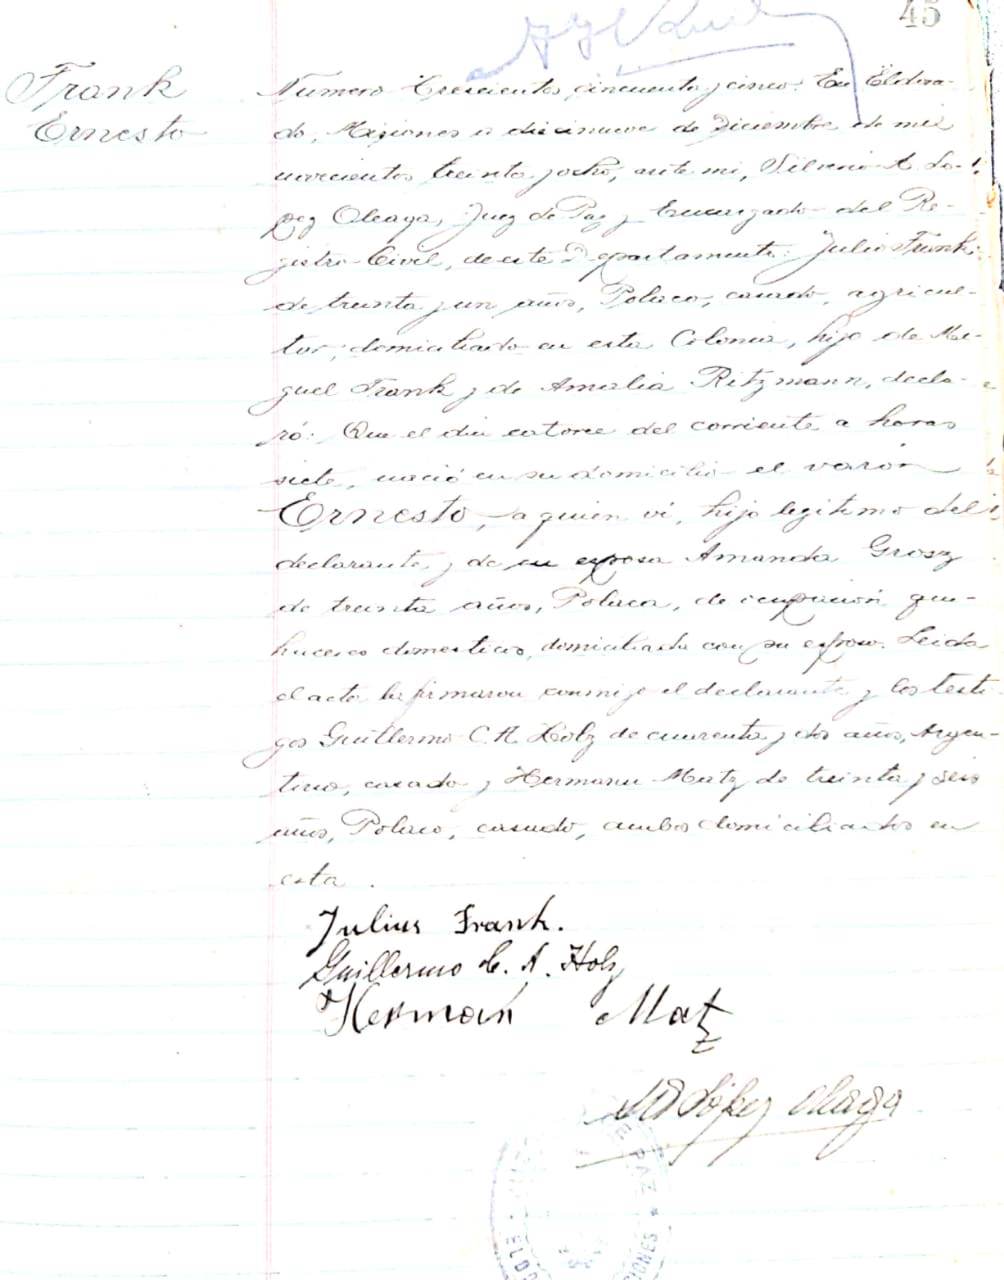 45
Frank
Ernesto
Numero trescientos cincuenta y cinco. En Eldora-
do, Misiones a diecinueve de Diciembre de mil
novecientos treinta y ocho, ante mi, A. Lo-
pez Oleaga, Juez de Paz y Encargado del Re-
gistro Civil, de este Departamento: Julio Frank
de treinta y un años, Polaco, casado, agricul-
tor, domiciliado en esta Colonia, hijo de Mi-
guel Frank y de Amalia Ritzmann, decla-
ró: Que el dia catorce del corriente a horas
siete, nació en su domicilio el varón
Ernesto, a quien vi, hijo legitimo del
declarante, y de su esposa Amanda Grosz
de treinta años, Polaca, de ocupación que-
haceres domesticos, domiciliada con su esposo. Leida
el acta la firmaron conmigo el declarante y los testi-
gos Guillermo C. A. Holz de cuarenta y dos años, Argen-
tino, casado y Hermann Matz de treinta y seis
años, Polaco, casado, ambos domiciliados en
esta.
Julius Frank.
Guillermo C. A. Holz
Hermann Matz
López Oleaga
DE PAZ
ELDO
IONES